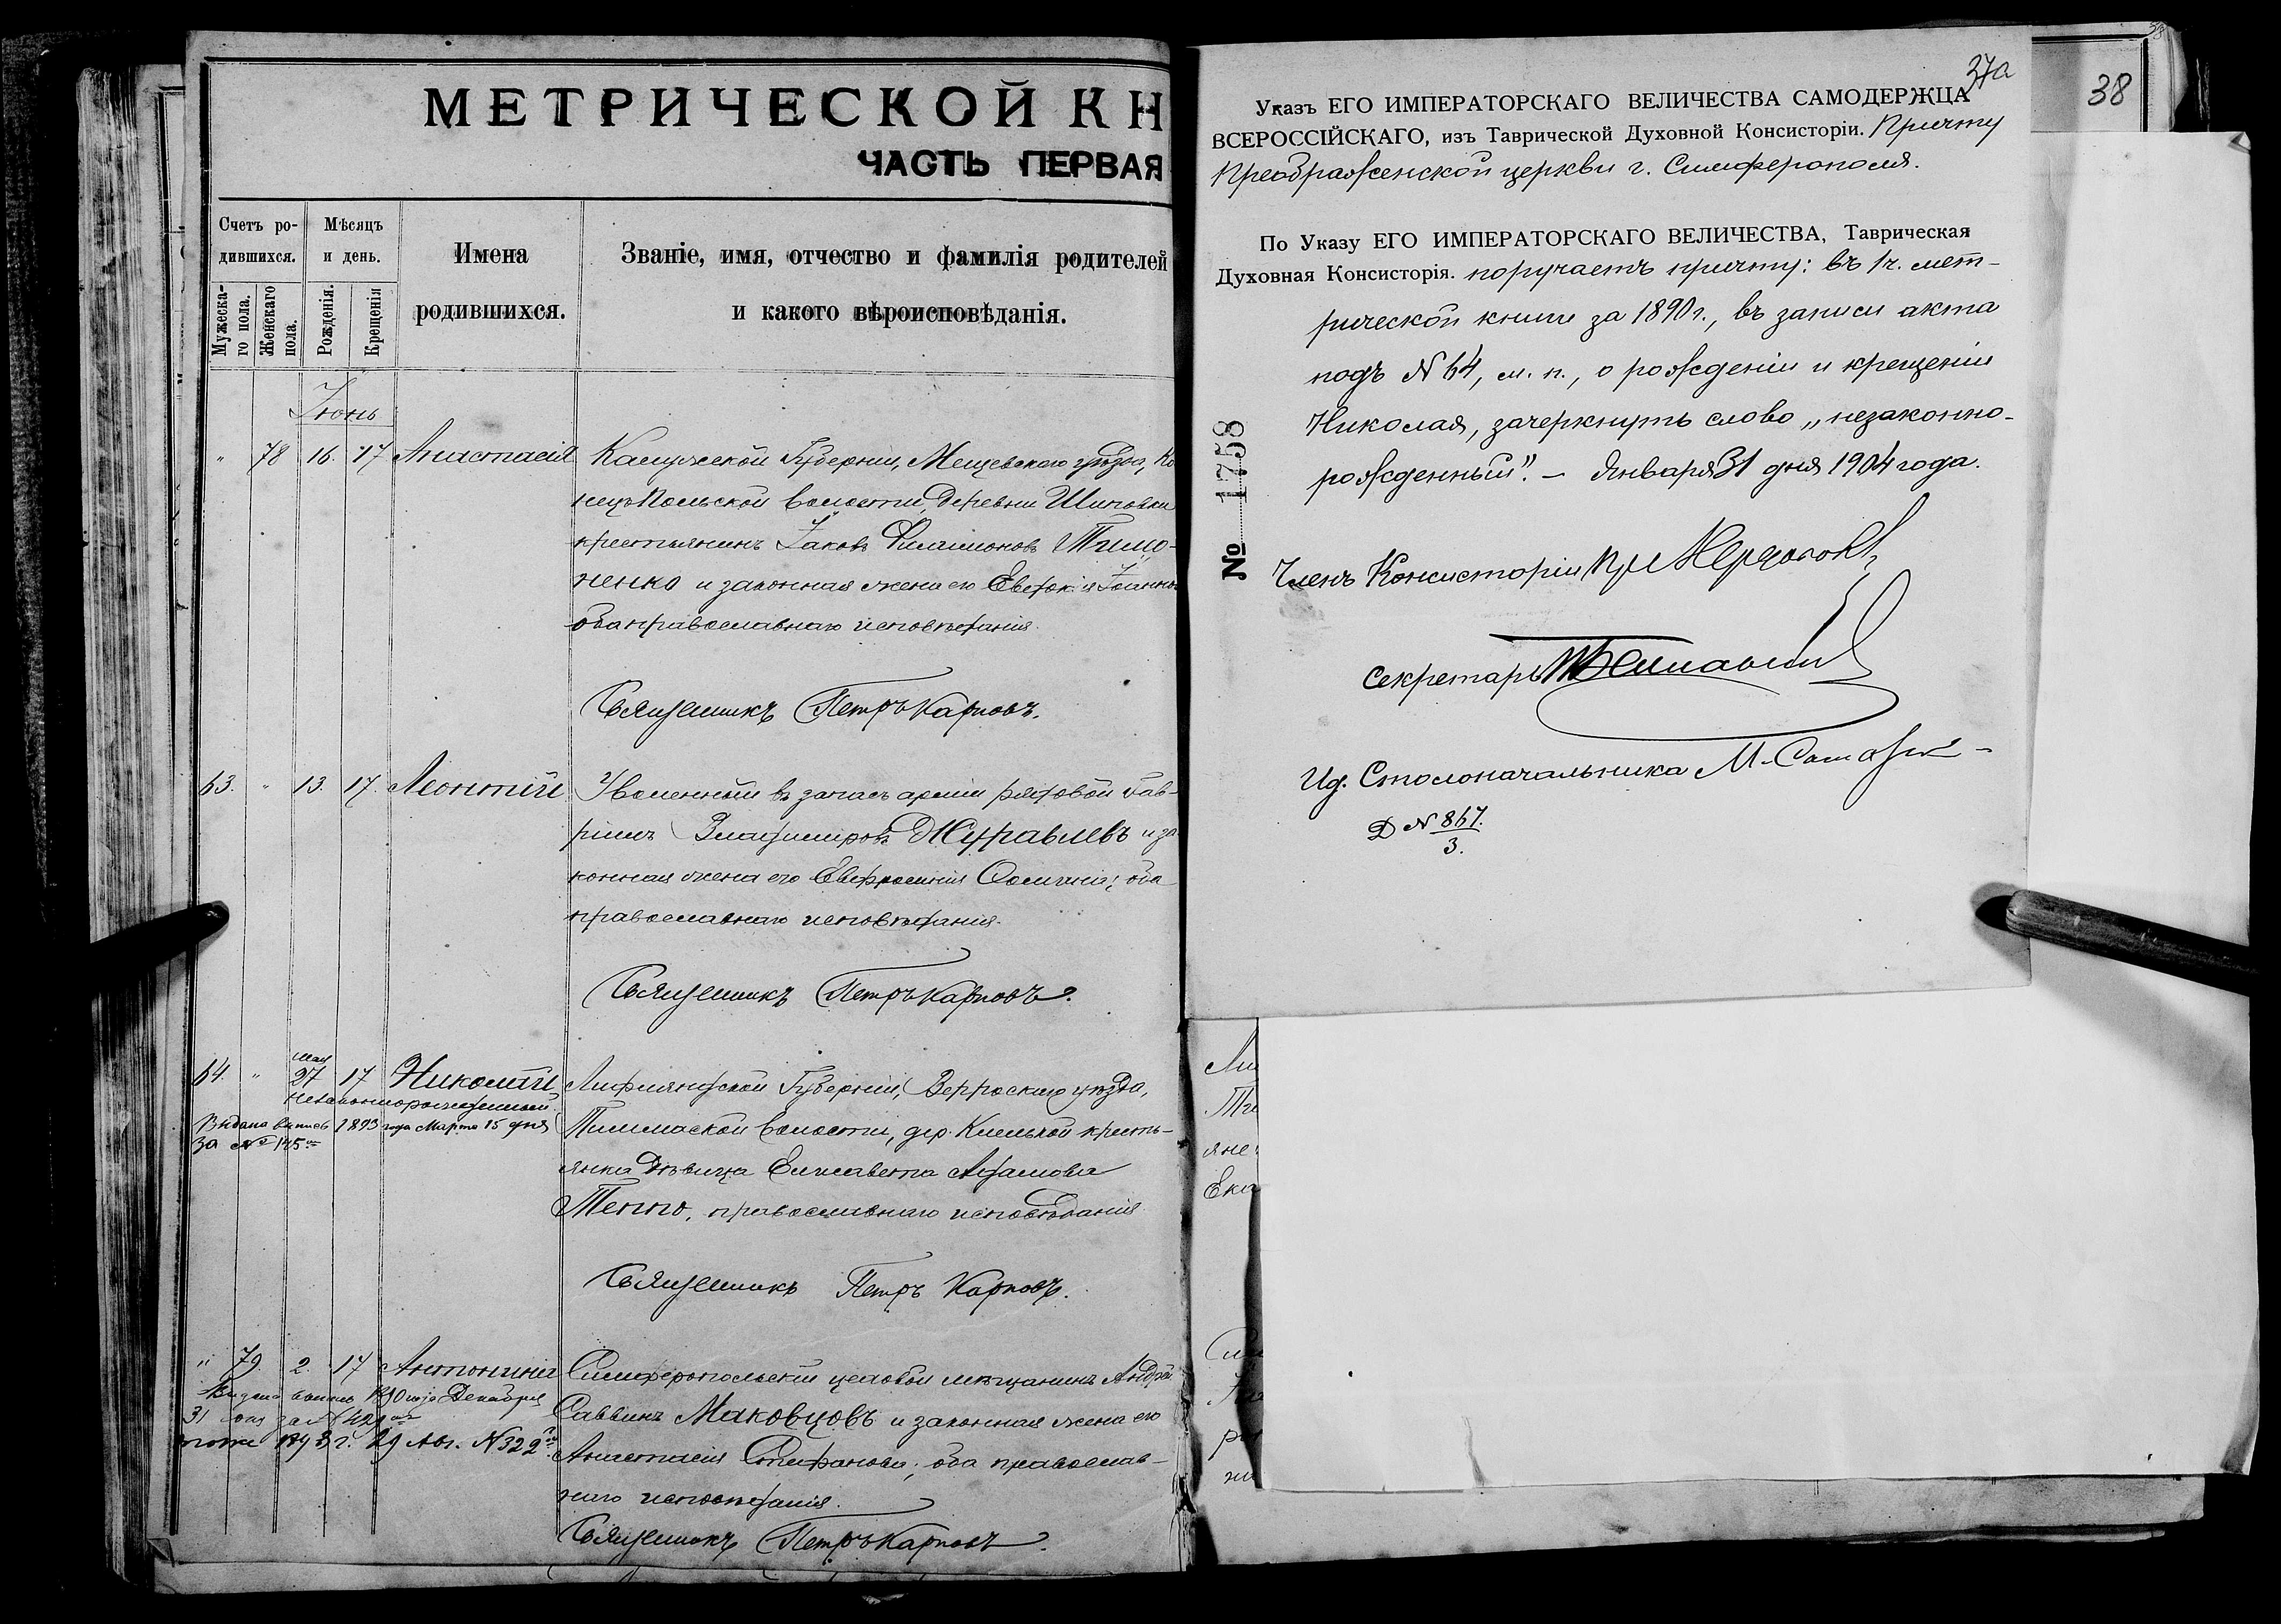 МЕТРИЧЕСКОЙ КН
ЧАСТЬ ПЕРВАЯ
Счетъ ро-
дившихся.
Мужеска-
го пола.
Женскаго
пола.
Мѣсяцъ
и день.
Рожденія.
Крещенія
Имена
родившихся.
Званіе, имя, отчество и фамилія родителей
и какого вѣроисповѣданія.
Іюнь
" 78 16. 17 Анастасія Калужской Губерніи, Мещевскаго уѣзда, Ко
нецпольской волости, деревни Шиповки
крестьянинъ Іаковъ Филимоновъ Тимо-
ненко и законная жена его Евдокія Іоаннов
оба православнаго исповѣданія.
Священникъ Петръ Карповъ.
63. " 13. 17. Леонтій Уволенный въ запасъ арміи рядовой Гав-
ріилъ Владиміровъ Журавлевъ и за
конная жена его Евфросинія Осипова; оба
православнаго исповѣданія.
Священникъ Петръ Карповъ.
64. " мая 27 17 Николай Лифляндской Губерніи, Верроскаго уѣзда,
незаконнорожденный.
Выдана выпись 1893 года Марта 15 дня
за № 145
волости, дер. кресть-
янка дѣвица Елисавета Адамова
Теппо, православнаго исповѣданія
Священникъ Петръ Карповъ.
" 79. 2. 17 Антонина Симферопольскій цеховой мѣщанинъ Андрей
Выдана выпись 1890 года Декабря
31 дня за № 421
тоже 1898 г. 29 Авг. № 322
Саввинъ Маковцовъ и законная жена его
Анастасія Стефанова; оба православ-
наго исповѣданія.
Священникъ Петръ Карповъ.
37а
38
Указъ ЕГО ИМПЕРАТОРСКАГО ВЕЛИЧЕСТВА САМОДЕРЖЦА
ВСЕРОССІЙСКАГО, изъ Таврической Духовной Консисторіи. Причту
Преображенской церкви г. Симферополя.
По Указу ЕГО ИМПЕРАТОРСКАГО ВЕЛИЧЕСТВА, Таврическая
Духовная Консисторія. поручаетъ причту: въ 1 ч. мет-
рической книги за 1890 г., въ записи акта
подъ № 64, м. п., о рожденіи и крещеніи
Николая, зачеркнуть слово „незаконно-
рожденный". – Января 31 дня 1904 года.
№ 1758
Членъ Консисторіи
Секретарь
Ид. Столоначальника М.
Д № 867.
3.
Ли
яне
Ека